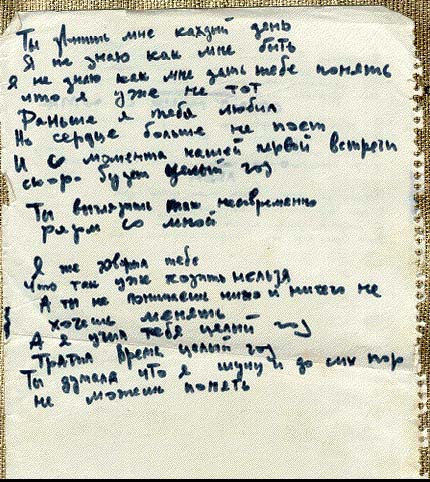 Ты звонишь мне каждый день
Я не знаю как мне быть
Я не знаю как мне дать тебе понять
что я уже не тот
Раньше я тебя любил
Но сердце больше не поёт
И с момента нашей первой встречи
скоро будет целый год
Ты выглядишь так несовременно
рядом со мной
Я же говорил тебе
что так уже ходить нельзя
А ты не понимаешь ниче и ничего не
хочешь менять
А я учил тебя целый год
Тратил время целый год
Ты думала что я шучу и до сих пор
не можешь понять